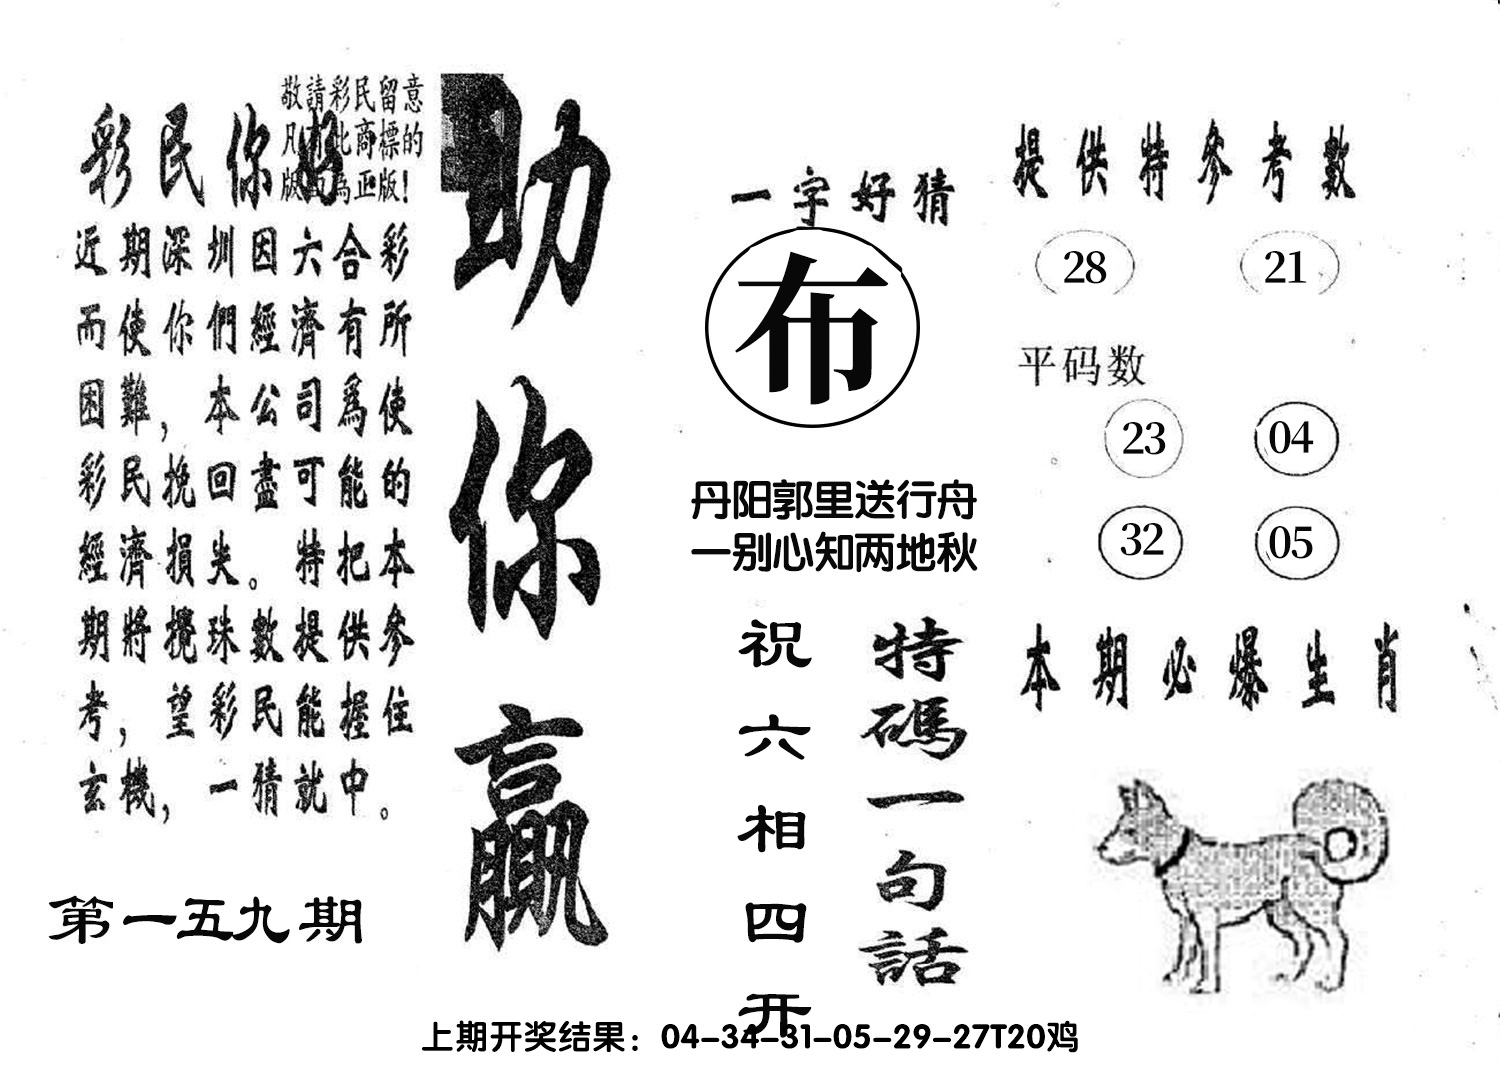 敬請彩民留意
凡有此商標的
版面為正版!
彩民你好
近期深圳因六合彩
而使你們經濟有所
困難,本公司爲使
彩民挽回盡可能的
經濟損失。特把本
期將攪珠數提供參
考,望彩民能握住
玄機,一猜就中。
第一五九期
助你贏
一字好猜
布
丹阳郭里送行舟
一别心知两地秋
特碼一句話
祝六相四开
提供特参考數
28 21
平码数
23 04
32 05
本期必爆生肖
上期开奖结果：04-34-31-05-29-27T20鸡